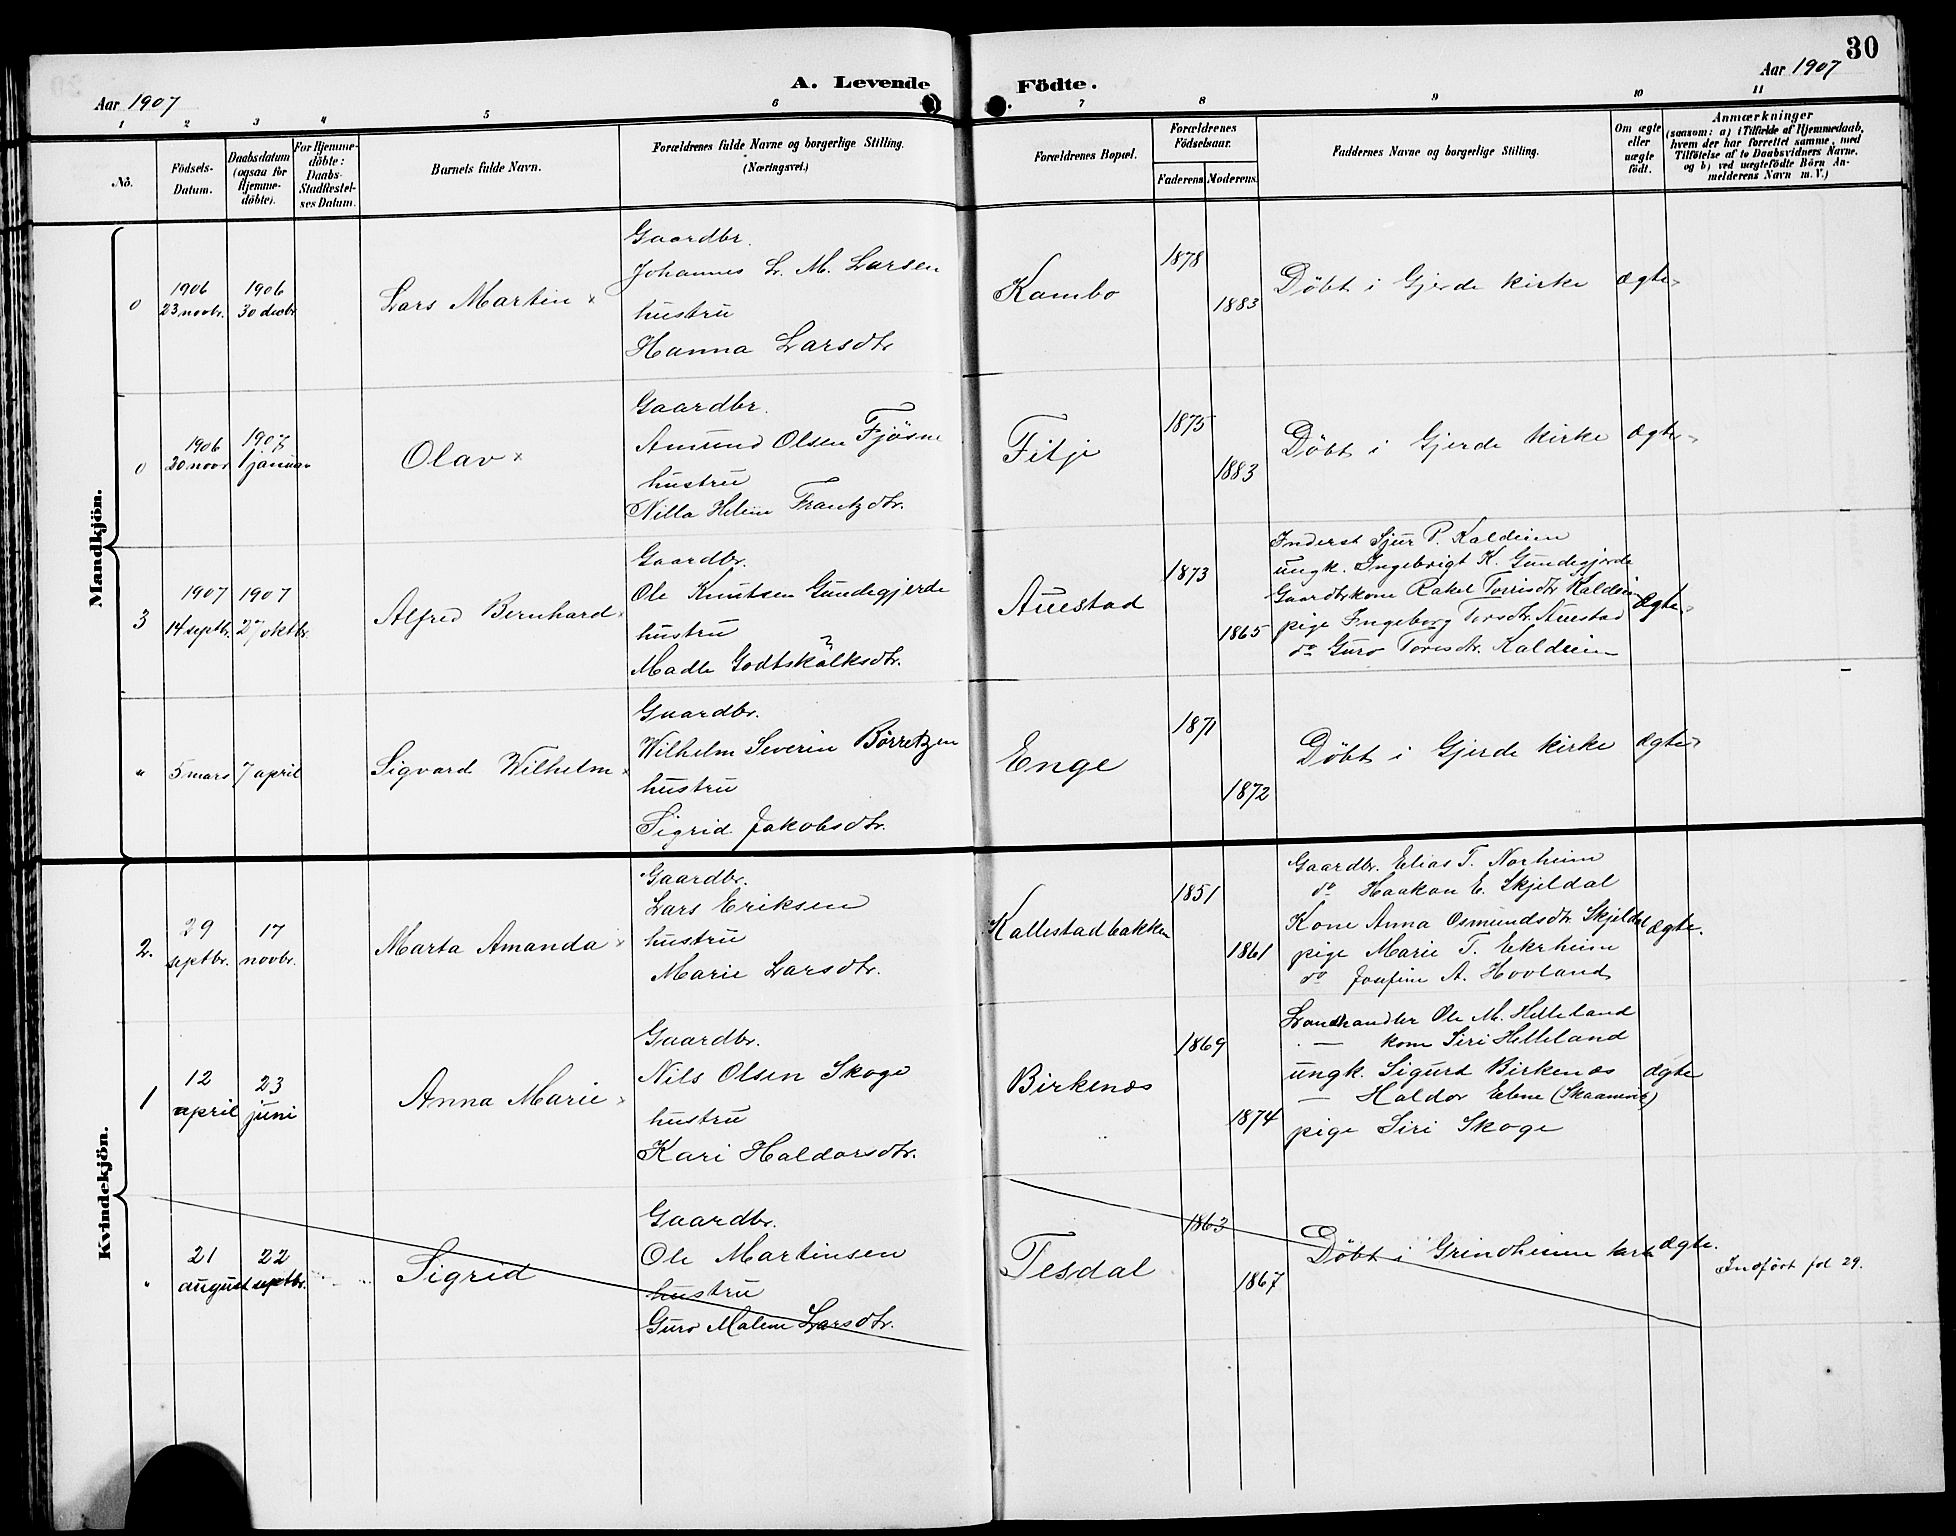 30
Aar 1907
A. Levende Födte.
Aar 1907
1 2 3 4 5 6 7 8 9 10 11
No.
Födsels-Datum.
Daabsdatum (ogsaa for Hjemme-döbte).
For Hjemme-döbte: Daabs-Stadfæstel-ses Datum.
Barnets fulde Navn.
Forældrenes fulde Navne og borgerlige Stilling.
(Næringsvei.)
Forældrenes Bopæl.
Forældrenes Födselsaar.
Faderens Moderens
Faddernes Navne og borgerlige Stilling.
Om ægte eller uægte födt.
Anmærkninger
(saasom: a) i Tilfælde af Hjemmedaab,
hvem der har forrettet samme, med
Tilföielse af to Daabsvidners Navne,
og b) ved uægtefödte Börn An-
melderens Navn m. V.)
Mandkjön.
0
1906
23 novbr.
1906
30 decbr
Lars Martin x
Gaardbr.
Johannes L. M. Larsen
hustru
Hanna Larsdtr
Kambo
1878
1883
Døbt i Gjerde kirke
Ægte
0
1906
20 novr
1907
1 januar
Olav x
Gaardbr.
Amund Olsen Fjøsne
hustru
Nilla Helene Frantzdtr.
Fitje
1875
1883
Døbt i Gjerde kirke
Ægte
3
1907
14 septbr.
1907
27 oktbr.
Alfred Bernhard x
Gaardbr.
Ole Knutsen Gundegjerde
hustru
Madle Godtskalksdtr.
Auestad
1873
1865
Inderst Sjur P. Kaldeim
ungk. Ingebrigt K. Gundegjerde
Gaardbrkone Rakel Torrisdtr Kaldeim
pige Ingeborg Torsdtr. Auestad
do Guro Torisdtr. Kaldeim
Ægte
"
5 mars
7 april
Sigvard Wilhelm x
Gaardbr.
Wilhelm Severin Børretzen
hustru
Sigrid Jakobsdtr.
Enge
1871
1872
Døbt i Gjerde kirke
Ægte
Kvindekjön.
2.
29
septbr.
17
novbr.
Marta Amanda x
Gaardbr.
Lars Eriksen
hustru
Marie Larsdtr.
Kallestadbakken
1851
1861
Gaardbr. Elias T. Norheim
do Haakon E. Skjeldal
Kone Anna Osmundsdtr Skjeldal
pige Marie T. Ekrheim
do Josefine A. Hovland
Ægte.
1
12
april
23
juni
Anna Marie x
Gaardbr.
Nils Olsen Skoge
hustru
Kari Haldorsdtr.
Birkenæs
1869
1874
Landhandler Ole M. Helleland
— kone Siri Helleland
ungk. Sigurd Birkenæs
— Haldor Ebne (Skaanevik)
pige Siri Skoge
Ægte
"
21
august
22
septbr.
Sigrid
Gaardbr.
Ole Martinsen
hustru
Guro Malene Larsdtr.
Tesdal
1863
1867
Døbt i Grindheim kirke
Ægte.
Indført fol 29.